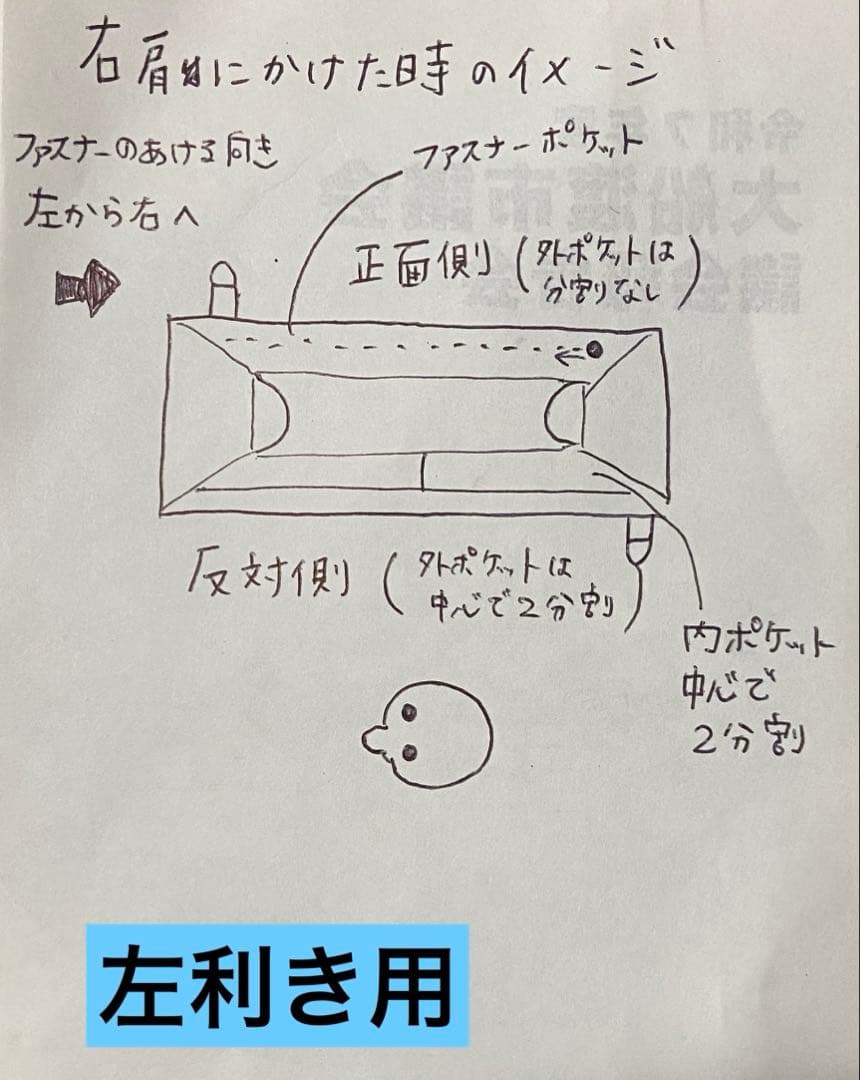 右肩にかけた時のイメージ
ファスナーのあける向き
左から右へ
ファスナーポケット
正面側(外ポケットは
分割りなし)
反対側(外ポケットは
中心で2分割)
内ポケット
中心で
2分割
左利き用